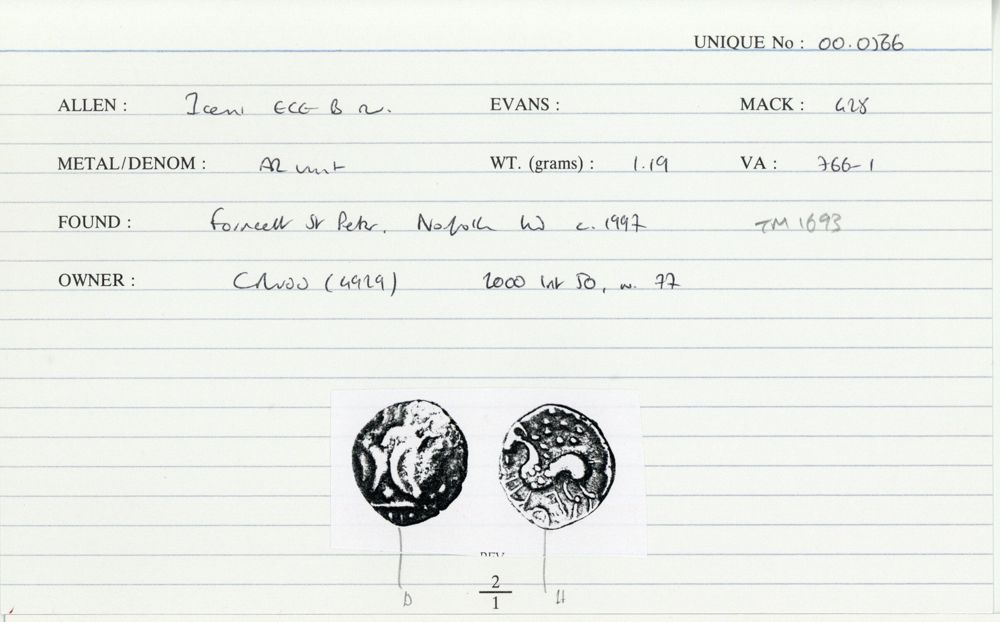 UNIQUE No : 00.0366
ALLEN : Iceni ECE B EVANS : MACK : 428
METAL/DENOM : AR unit WT. (grams) : 1.19 VA : 766-1
FOUND : Forncett St Peter, Norfolk c. 1997 TM 1693
OWNER : (4929) 2000 50, 77
REV
D 2 H
1